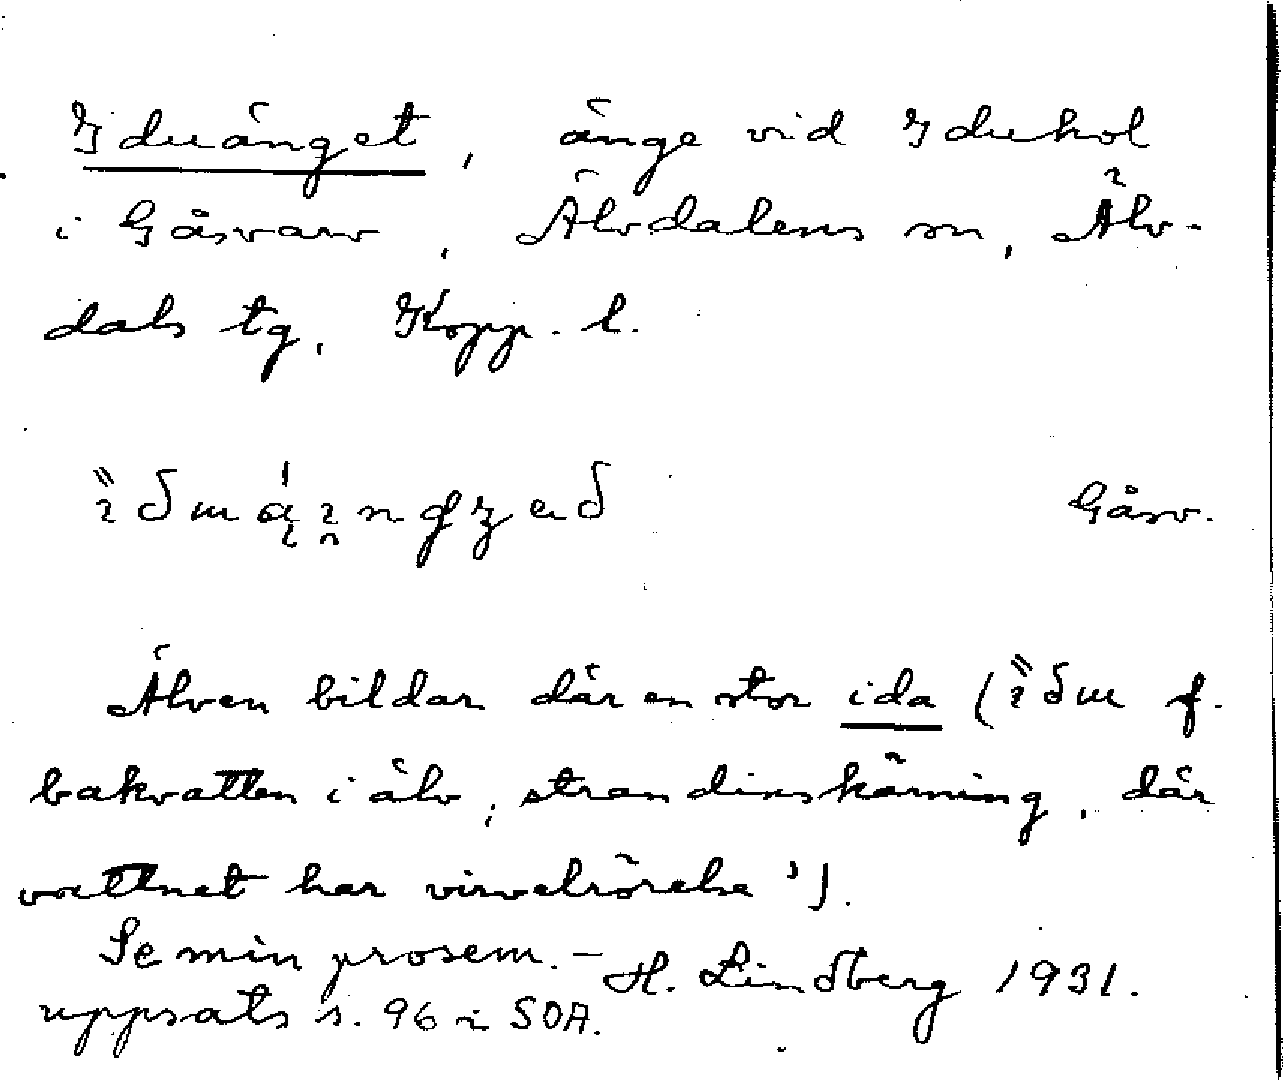 Iduänget, änge vid Iduhol
i Gåsvarv, Älvdalens sn, Älv-
dals tg, Kopp. l.
Gåsv.
Älven bildar där en stor ida (
f.
bakvatten i älv, strandinskärning, där
vattnet har virvelrörelse').
Se min prosem.-
H. Lindberg 1931.
uppsats s. 96 i SOA.